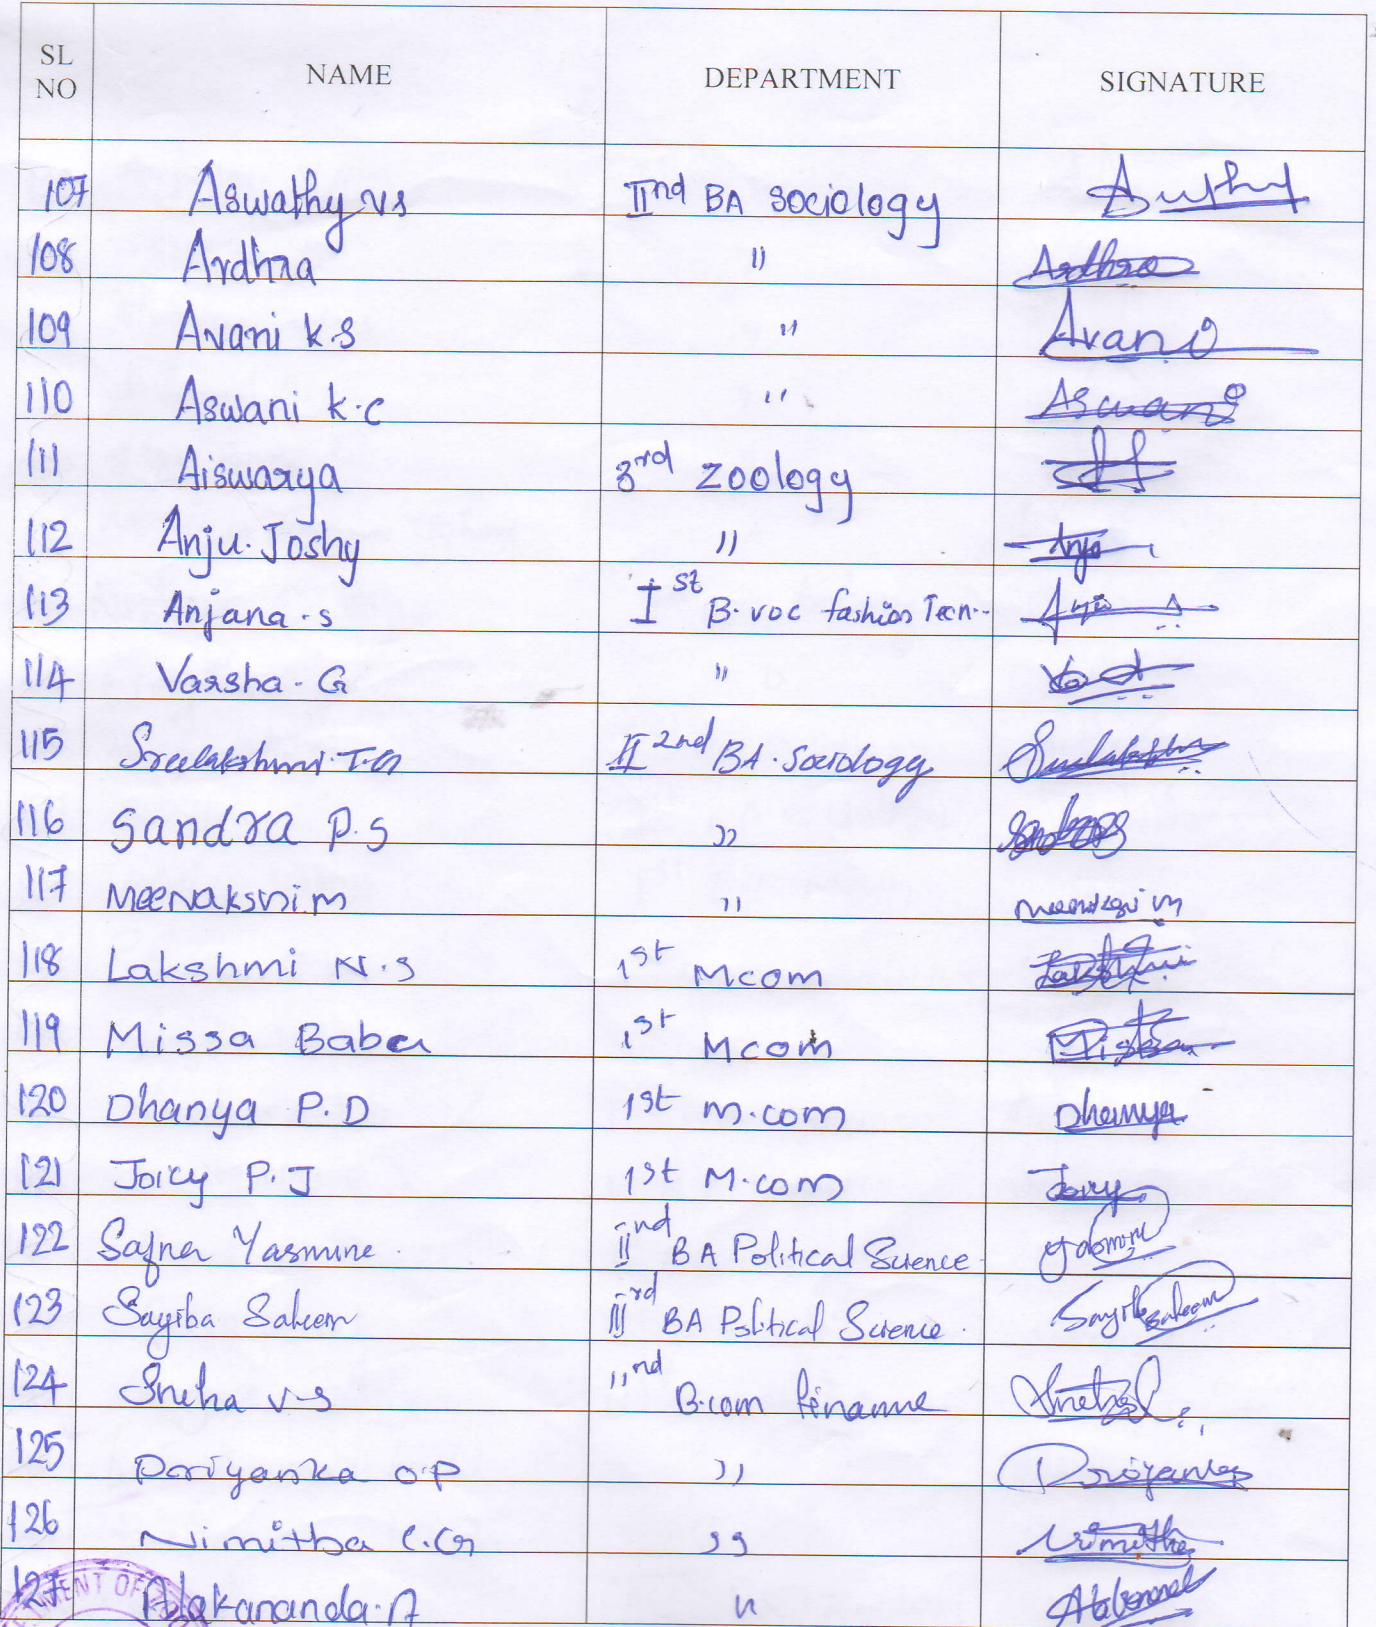 SL NO NAME DEPARTMENT SIGNATURE
107 Aswathy v.s IInd BA Sociology
108 Ardhra " Ardhra
109 Avani k.s " Avani
110 Aswani k.c " Aswani
111 Aiswarya 3rd Zoology
112 Anju. Joshy " Anju
113 Anjana.s Ist B.voc fashion Tecn..
114 Varsha.G "
115 Sreelakshmi.T.G II 2nd BA.Sociology Sreelakshmi
116 Sandra P.S "
117 Meenakshi.m " Meenakshi m
118 Lakshmi N.S 1st Mcom Lakshmi
119 Missa Baba 1st Mcom
120 Dhanya P.D 1st m.com Dhanya
121 Joicy P.J 1st M.com Joicy
122 Safna Yasmine. IInd BA Political Science. Yasmine
123 Sayiba Saleem IIIrd BA Political Science. Sayiba Saleem
124 Sneha v.s IInd B.com finanne Sneha
125 Pariyanka O.P " Priyanka
126 Nimitha C.G " Nimitha
127 Alakananda.A "
MENT OF